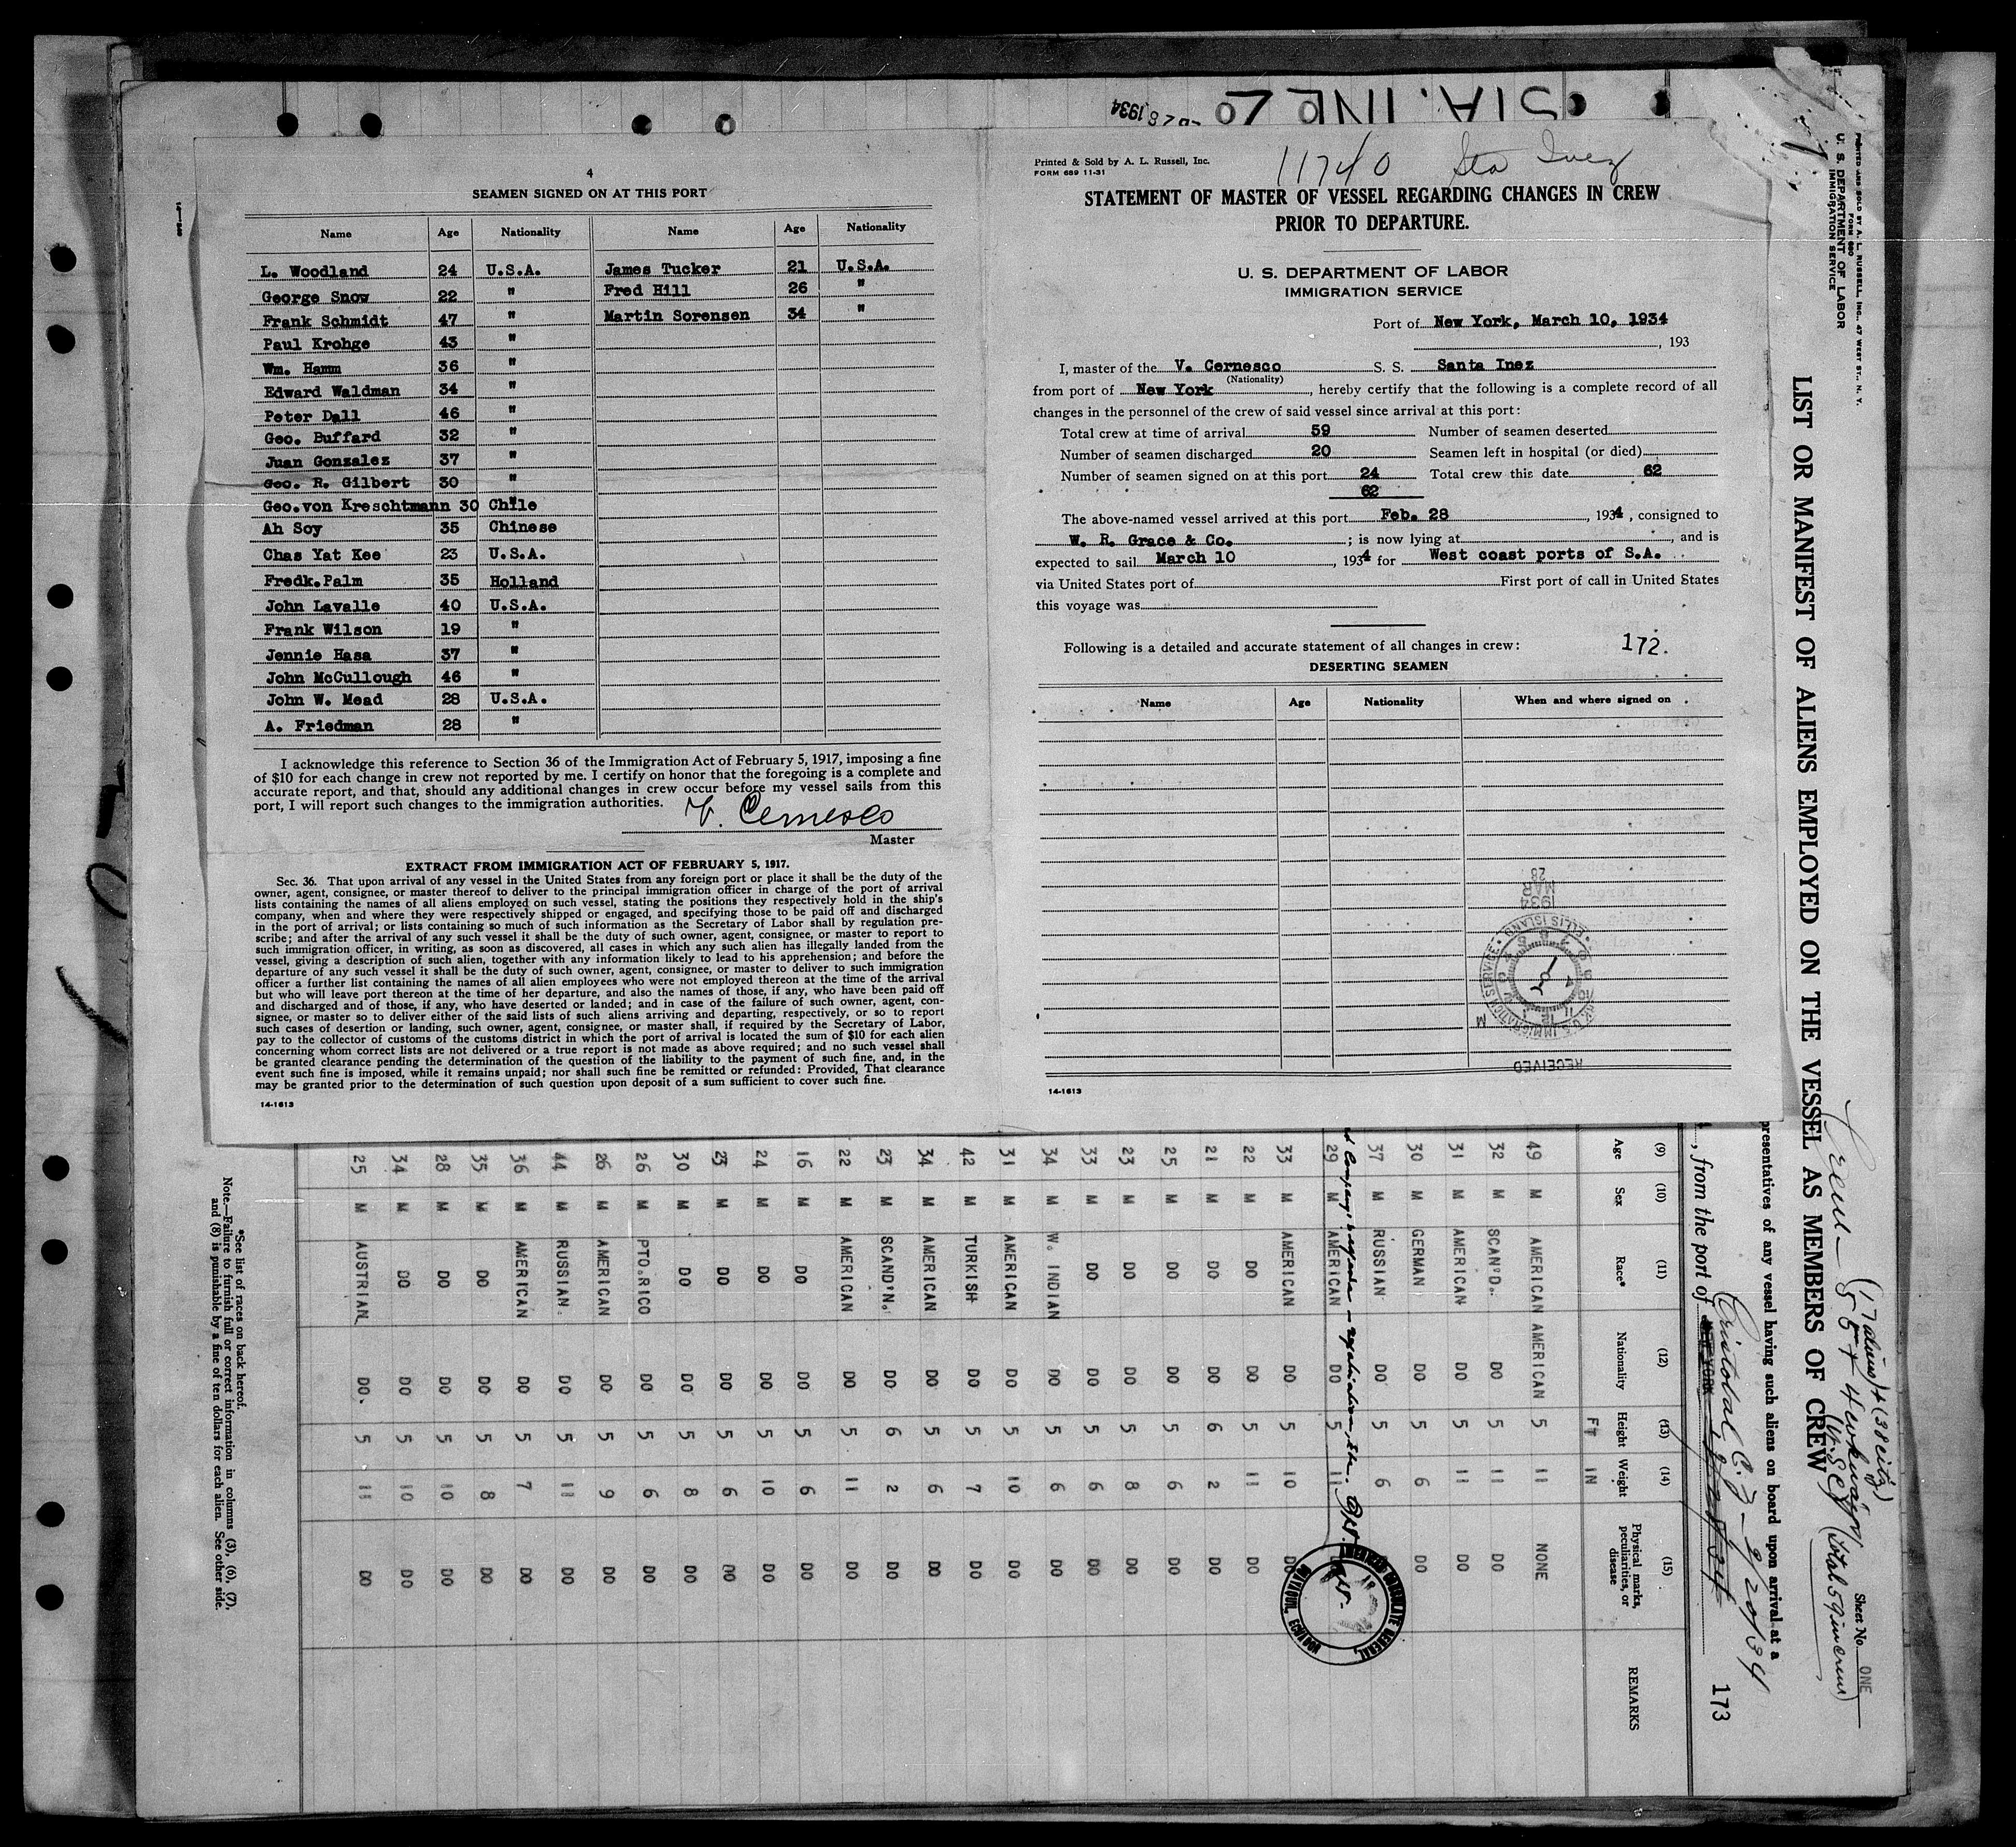 STA. INEZ
1934
4
SEAMEN SIGNED ON AT THIS PORT
Name Age Nationality Name Age Nationality
L. Woodland 24 U.S.A. James Tucker 21 U.S.A.
George Snow 22 " Fred Hill 26 "
Frank Schmidt 47 " Martin Sorensen 34 "
Paul Krohge 43 "
Wm. Hamm 36 "
Edward Waldman 34 "
Peter Dall 46 "
Geo. Buffard 32 "
Juan Gonzalez 37 "
Geo. R. Gilbert 30 "
Geo.von Kreschtmann 30 Chile
Ah Soy 35 Chinese
Chas Yat Kee 23 U.S.A.
Fredk.Palm 35 Holland
John Lavalle 40 U.S.A.
Frank Wilson 19 "
Jennie Hasa 37 "
John McCullough 46 "
John W. Mead 28 U.S.A.
A. Friedman 28 "
I acknowledge this reference to Section 36 of the Immigration Act of February 5, 1917, imposing a fine
of $10 for each change in crew not reported by me. I certify on honor that the foregoing is a complete and
accurate report, and that, should any additional changes in crew occur before my vessel sails from this
port, I will report such changes to the immigration authorities.
V. Cernesco
Master
EXTRACT FROM IMMIGRATION ACT OF FEBRUARY 5, 1917.
Sec. 36. That upon arrival of any vessel in the United States from any foreign port or place it shall be the duty of the
owner, agent, consignee, or master thereof to deliver to the principal immigration officer in charge of the port of arrival
lists containing the names of all aliens employed on such vessel, stating the positions they respectively hold in the ship's
company, when and where they were respectively shipped or engaged, and specifying those to be paid off and discharged
in the port of arrival; or lists containing so much of such information as the Secretary of Labor shall by regulation pre-
scribe; and after the arrival of any such vessel it shall be the duty of such owner, agent, consignee, or master to report to
such immigration officer, in writing, as soon as discovered, all cases in which any such alien has illegally landed from the
vessel, giving a description of such alien, together with any information likely to lead to his apprehension; and before the
departure of any such vessel it shall be the duty of such owner, agent, consignee, or master to deliver to such immigration
officer a further list containing the names of all alien employees who were not employed thereon at the time of the arrival
but who will leave port thereon at the time of her departure, and also the names of those, if any, who have been paid off
and discharged and of those, if any, who have deserted or landed; and in case of the failure of such owner, agent, con-
signee, or master so to deliver either of the said lists of such aliens arriving and departing, respectively, or so to report
such cases of desertion or landing, such owner, agent, consignee, or master shall, if required by the Secretary of Labor,
pay to the collector of customs of the customs district in which the port of arrival is located the sum of $10 for each alien
concerning whom correct lists are not delivered or a true report is not made as above required; and no such vessel shall
be granted clearance pending the determination of the question of the liability to the payment of such fine, and, in the
event such fine is imposed, while it remains unpaid; nor shall such fine be remitted or refunded: Provided, That clearance
may be granted prior to the determination of such question upon deposit of a sum sufficient to cover such fine.
14-1613
Printed & Sold by A. L. Russell, Inc.
FORM 689 11-31
11740 Sta Inez
STATEMENT OF MASTER OF VESSEL REGARDING CHANGES IN CREW
PRIOR TO DEPARTURE.
U. S. DEPARTMENT OF LABOR
IMMIGRATION SERVICE
Port of New York, March 10, 1934
, 193
I, master of the V. Cernesco S. S. Santa Inez
(Nationality)
from port of New York, hereby certify that the following is a complete record of all
changes in the personnel of the crew of said vessel since arrival at this port:
Total crew at time of arrival 59 Number of seamen deserted
Number of seamen discharged 20 Seamen left in hospital (or died)
Number of seamen signed on at this port 24 Total crew this date 62
62
The above-named vessel arrived at this port Feb. 28, 1934, consigned to
W. R. Grace & Co.; is now lying at, and is
expected to sail March 10, 1934 for West coast ports of S.A.
via United States port of First port of call in United States
this voyage was
Following is a detailed and accurate statement of all changes in crew: 172.
DESERTING SEAMEN
Name Age Nationality When and where signed on
RECEIVED
U.S. IMMIGRATION SERVICE ELLIS ISLAND
1934 MAR 28
14-1613
PRINTED AND SOLD BY A. L. RUSSELL, INC., 47 WEST ST., N. Y.
FORM 680
U. S. DEPARTMENT OF LABOR
IMMIGRATION SERVICE
Sheet No. ONE
Crew 55 + 4 workaways (Total 59 in crew)
(17 aliens) + (38 citz)
(U.S.C.)
LIST OR MANIFEST OF ALIENS EMPLOYED ON THE VESSEL AS MEMBERS OF CREW
presentatives of any vessel having such aliens on board upon arrival at a
, from the port of NEW YORK
Cristobal C.Z. 2/20/34
173
(9) (10) (11) (12) (13) (14) (15)
Age Sex Race* Nationality Height Weight Physical marks, peculiarities, or disease REMARKS
FT IN
49 M AMERICAN AMERICAN 5 11 NONE
32 M SCAN'D. DO 5 11 DO
31 M AMERICAN DO 5 11 DO
30 M GERMAN DO 5 6 DO
37 M RUSSIAN DO 5 6
29 M AMERICAN DO 5 11
33 M AMERICAN DO 5 10 DO
22 M DO DO 5 11 DO
21 M DO DO 6 2 DO
25 M DO DO 5 6 DO
23 M DO DO 5 8 DO
33 M DO DO 5 6 DO
34 M W. INDIAN DO 5 6 DO
31 M AMERICAN DO 5 10 DO
42 M TURKISH DO 5 7 DO
34 M AMERICAN DO 5 6 DO
23 M SCAND'N. DO 6 2 DO
22 M AMERICAN DO 5 11 DO
16 M DO DO 5 6 DO
24 M DO DO 5 10 DO
23 M DO DO 5 6 DO
30 M DO DO 5 8 DO
26 M PTO.RICO DO 5 6 DO
26 M AMERICAN DO 5 9 DO
44 M RUSSIAN DO 5 11 DO
36 M AMERICAN DO 5 7 DO
35 M DO DO 5 8 DO
28 M DO DO 5 10 DO
34 M DO DO 5 10 DO
25 M AUSTRIAN DO. 5 11 DO
AMERICAN CONSULATE GENERAL, GUAYAQUIL, ECUADOR
*See list of races on back hereof.
Note.—Failure to furnish full or correct information in columns (3), (6), (7),
and (8) is punishable by a fine of ten dollars for each alien. See other side.